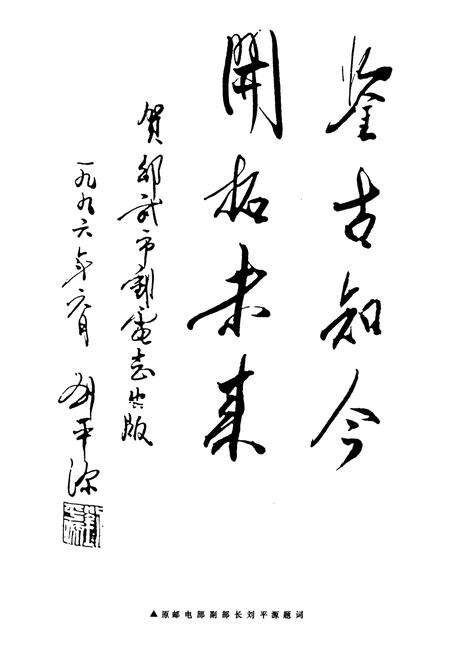 鉴古知今
開拓未来
贺邵武市郵電志出版
一九九六年六月
刘平源
▲原邮电部副部长刘平源题词